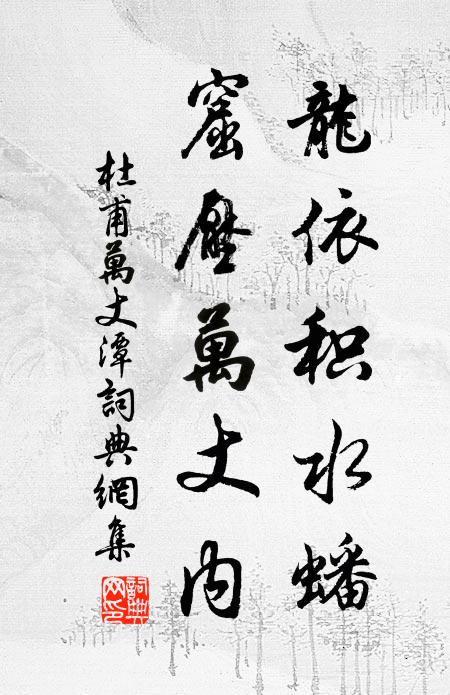 龍依积水蟠
窟壓萬丈内
杜甫萬丈潭詞典網集